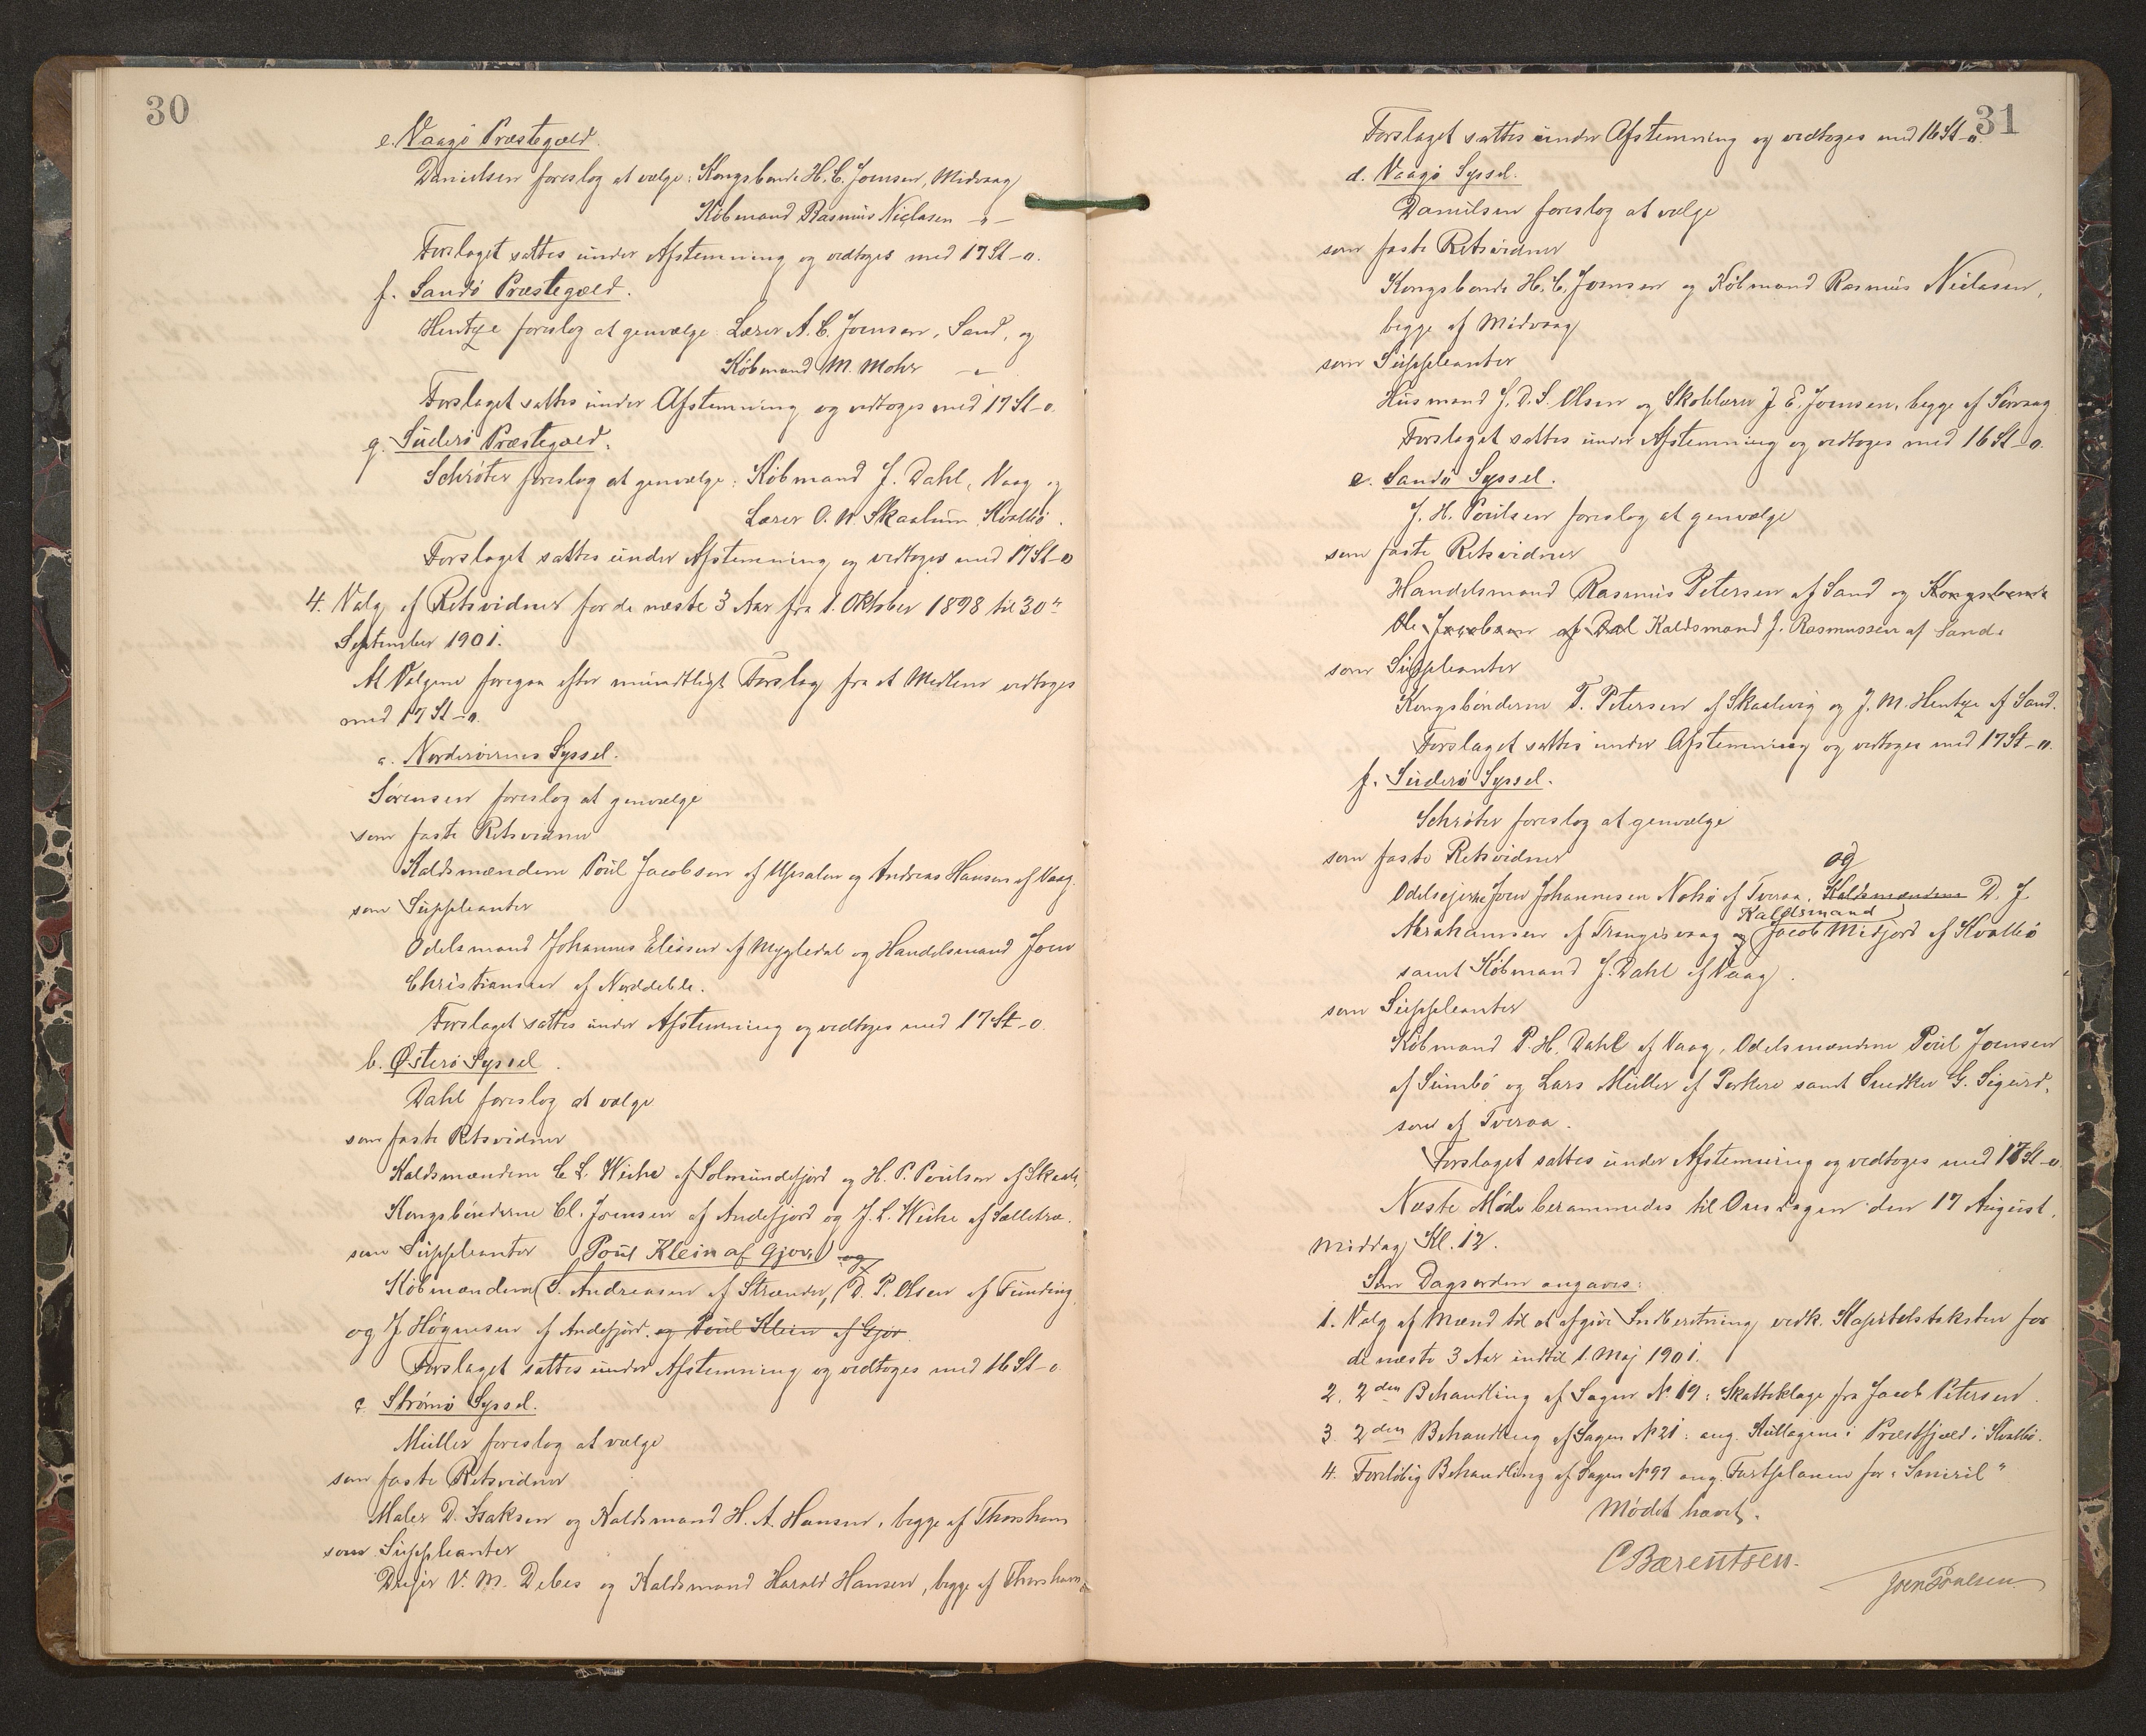 30
e. Vaagø Præstegæld.
Danielsen foreslog at vælge: Kongsbonde H. C. Joensen, Midvaag
Købmand Rasmus Niclasen -"-
Forslaget sattes under Afstemning og vedtoges med 17 St-0.
f. Sandø Præstegæld.
Hentze foreslog at genvælge: Lærer A. C. Joensen, Sand, og
Købmand M. Mohr -"-
Forslaget sattes under Afstemning og vedtoges med 17 St-0.
g. Suderø Præstegæld.
Schrøter foreslog at genvælge: Købmand J. Dahl, Vaag og
Lærer O. W. Skaalum, Kvalbø.
Forslaget sattes under Afstemning og vedtoges med 17 St-0
4. Valg af Retsvidner for de næste 3 Aar fra 1. Oktober 1898 til 30te
September 1901.
At Valgene foregaa efter mundtligt Forslag fra et Medlem vedtoges
med 17 St-0.
a. Norderøernes Syssel.
Sørensen foreslog at genvælge
som faste Retsvidner
Kaldsmændene Poul Jacobsen af Uspalen og Andreas Hansen af Vaag.
som Suppleanter
Odelsmand Johannes Eliasen af Mygledal og Handelsmand Joen
Christiansen af Norddeble.
Forslaget sattes under Afstemning og vedtoges med 17 St-0.
b. Østerø Syssel.
Dahl foreslog at vælge
som faste Retsvidner
Kaldsmændene C. L. Weihe af Solmundefjord og H. P. Poulsen af Skaale,
Kongsbønderne Cl. Joensen af Andefjord og J. L. Weihe af Sælletræ.
som Suppleanter Poul Klein af Gjov, og
Købmændene S. Andreasen af Strænder, D. P. Olsen af Funding
og J. Høgnesen af Andefjord. og Poul Klein af Gjov.
Forslaget sattes under Afstemning og vedtoges med 16 St-0
c. Strømø Syssel.
Müller foreslog at vælge
som faste Retsvidner
Maler D. Isaksen og Kaldsmand H. A. Hansen, begge af Thorshavn
som Suppleanter
Drejer V. M. Debes og Kaldsmand Harald Hansen, begge af Thorshavn.
31
Forslaget sattes under Afstemning og vedtoges med 16 St-0.
d. Vaagø Syssel.
Danielsen foreslog at vælge
som faste Retsvidner
Kongsbonde H. C. Joensen og Købmand Rasmus Niclasen,
begge af Midvaag
som Suppleanter
Husmand J. D. S. Olsen og Skolelærer J. E. Joensen, begge af Sørvaag
Forslaget sattes under Afstemning og vedtoges med 16 St-0.
e. Sandø Syssel.
J. H. Poulsen foreslog at genvælge
som faste Retsvidner
Handelsmand Rasmus Petersen af Sand og Kongsbonde
Ole Jacobsen af Dal Kaldsmand J. Rasmussen af Sand.
som Suppleanter
Kongsbønderne T. Petersen af Skaalevig og J. M. Hentze af Sand.
Forslaget sattes under Afstemning og vedtoges med 17 St-0.
f. Suderø Syssel.
Schrøter foreslog at genvælge
som faste Retsvidner
og
Odelsejerne Joen Johannesen Nolsø af Tveraa, Kaldsmændene D. J.
Kaldsmand
Abrahamsen af Trangisvaag og Jacob Midjord af Kvalbø
samt Købmand J. Dahl af Vaag.
som Suppleanter
Købmand P. H. Dahl af Vaag, Odelsmændene Poul Joensen
af Sumbø og Lars Müller af Porkere samt Snedker G. Sigurd-
sen af Tveraa.
Forslaget sattes under Afstemning og vedtoges med 17 St-0.
Næste Møde berammedes til Onsdagen den 17 August,
Middag Kl. 12.
Som Dagsorden angaves:
1. Valg af Mænd til at afgive Indberetning vedk. Kapitelstaksten for
de næste 3 Aar indtil 1. Maj 1901.
2. 2den Behandling af Sagen No 19: Skatteklage fra Jacob Petersen.
3. 2den Behandling af Sagen No 21: ang. Kullagene i Præstfjæld i Kvalbø.
4. Foreløbig Behandling af Sagen No 97 ang. Fartplanen for "Smiril"
Mødet hævet.
C Bærentsen.
Joen Poulsen.